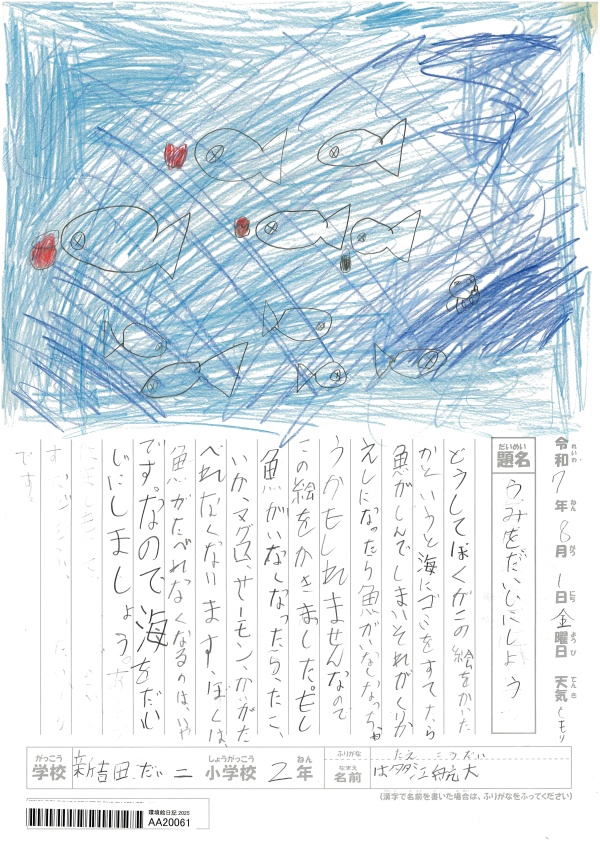 令和7年8月1日金曜日 天気くモリ
れいわ ねん がつ にち ようび てんき
だいめい
題名 うみをだいじにしよう
どうしてぼくがこの絵をかいた
かというと海にゴミをすてたら
魚がしんでしまいそれがくりか
えしになったら魚がいなくなっちゃ
うかもしれませんなので
この絵をかきました。もし
魚がいなくなったら、たこ、
いか、マグロ、サーモン、かいがた
べれなくなります、ぼくは、
魚がたべれなくなるのは、いや
です。なので海をだい
じにしましょう。
です。
がっこう しょうがっこう ねん ふりがな たえ こうだい
学校 新吉田だい二 小学校 2年 なまえ 名前 は多江航大
(漢字で名前を書いた場合は、ふりがなをふってください)
環境絵日記2025
AA20061